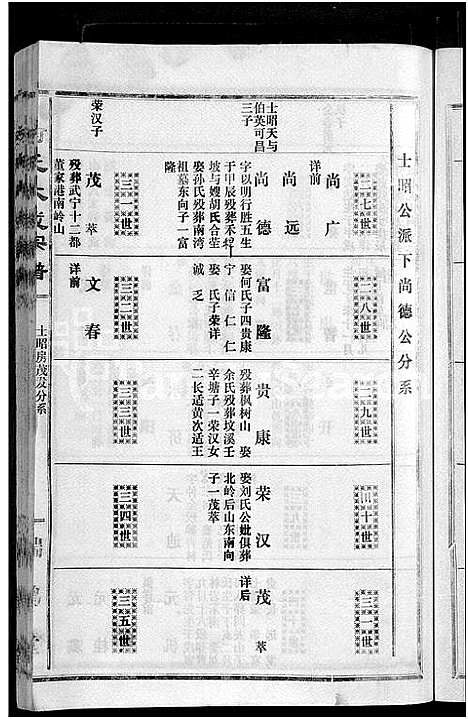 士昭公派下尚德公分系
二七世
尚广
详前
尚远
尚德
字以明行胜五生
于甲辰殁葬禾梓
坡与嫂胡氏合茔
娶孙氏殁葬南湾
祖墓东向子一富
隆
士昭天与
伯英可昌
三子
二八世
富隆
娶何氏子四贵康
宁信仁仁
娶氏子荣详
诚乏
二九世
贵康
殁葬枫树山娶
余氏殁葬坟溪王
辛塘子一荣汉女
二长适黄次适王
三十世
荣汉
娶刘氏公妣俱葬
北岭后山东南向
子一茂萃
三一世
茂萃
详后
三一世
茂萃
殁葬武宁十二都
董家港南岭山
荣汉子
三二世
文春
详前
三三世
三四世
三五世
士昭房茂及分系